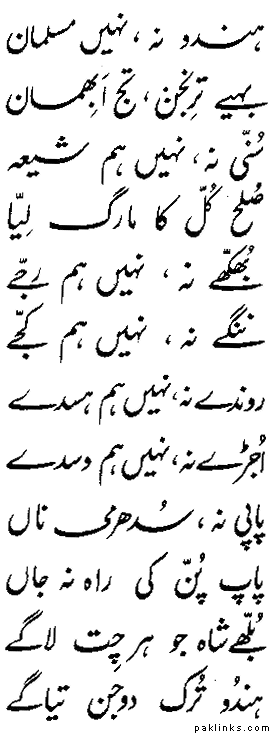 ہندو نہ، نہیں مسلمان
بہیے ترِنجن، تج اَبھمان
سُنّی نہ، نہیں ہم شیعہ
صُلح کُلّ کا مارگ لِیّا
بُھکھّے نہ، نہیں ہم رجّے
ننگے نہ، نہیں ہم کجّے
روندے نہ، نہیں ہم ہسدے
اُجڑے نہ، نہیں ہم وسدے
پاپی نہ، سُدھرمی ناں
پاپ پُنّ کی راہ نہ جاں
بُلّھے شاہ جو ہر چِت لاگے
ہندُو تُرک دوجن تیاگے
paklinks.com